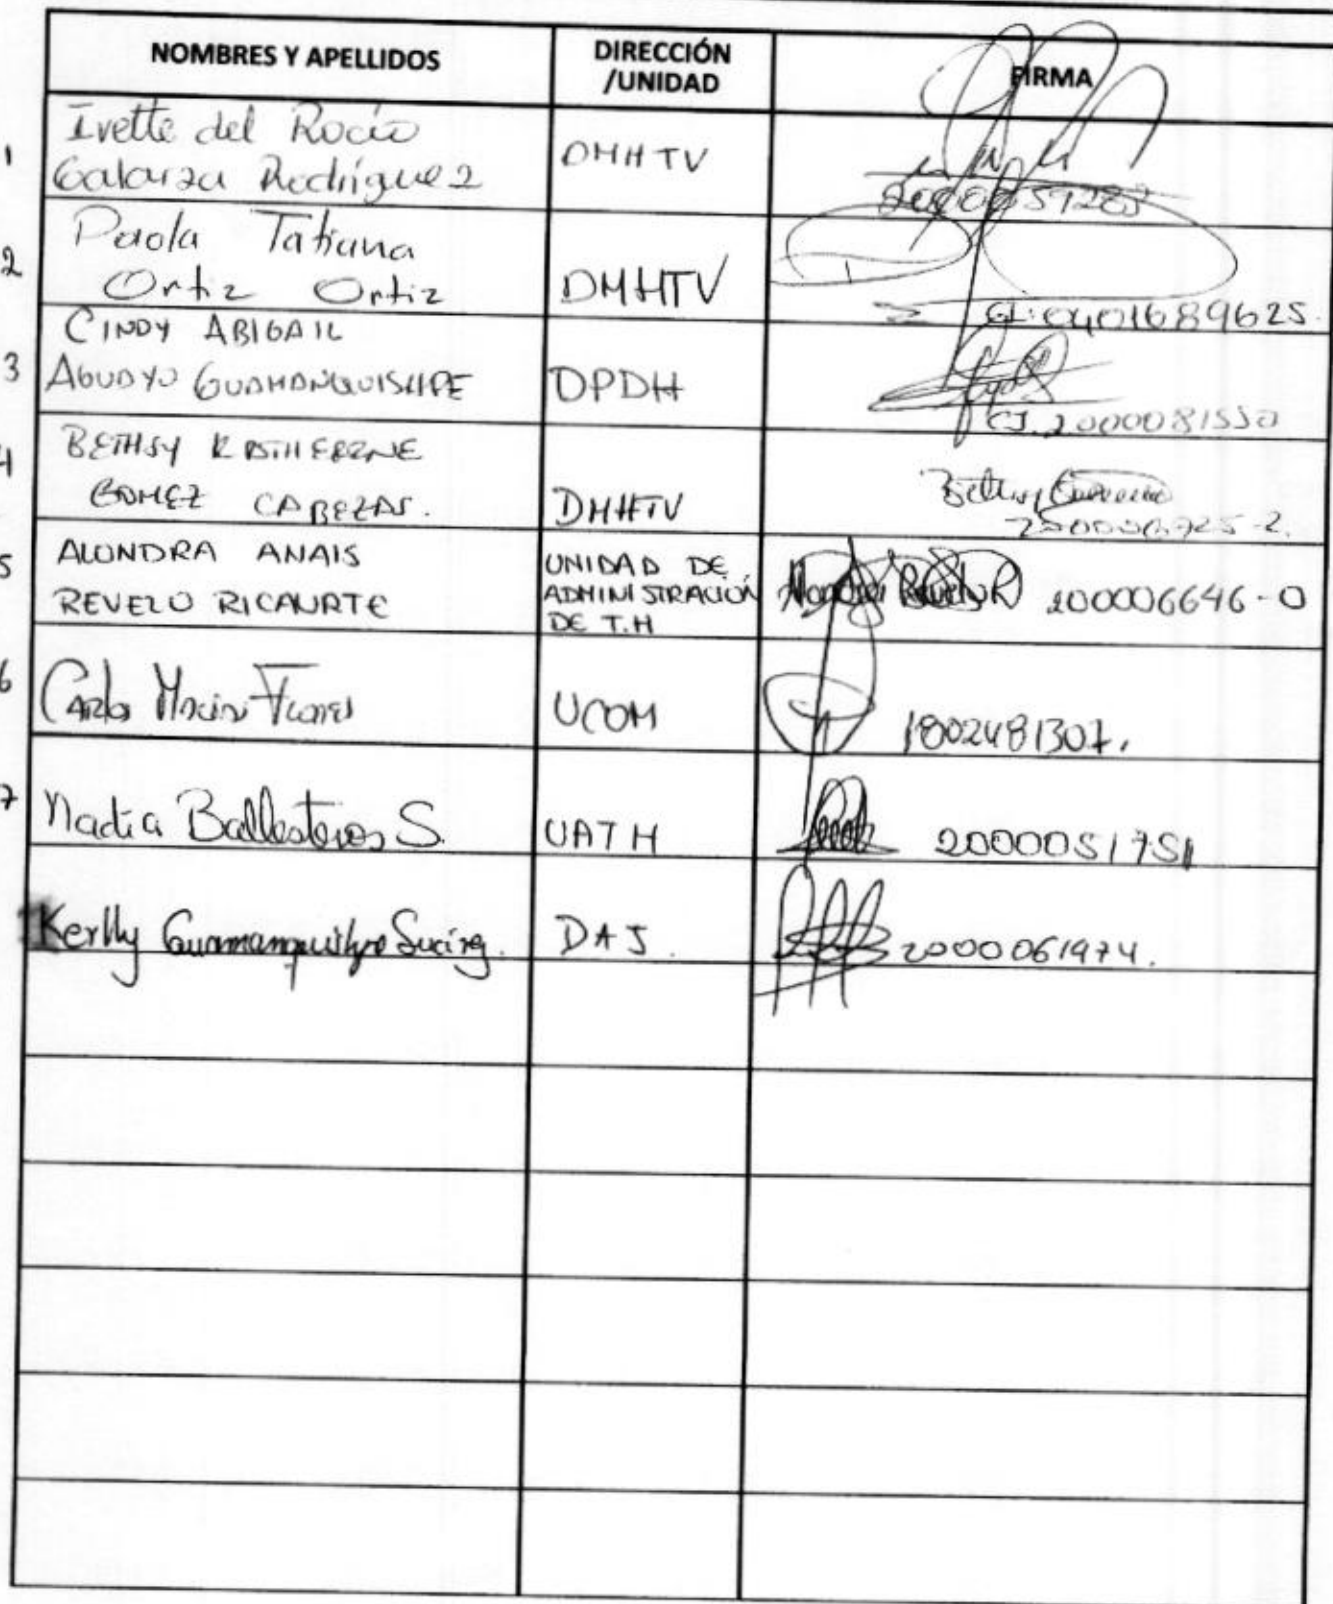 NOMBRES Y APELLIDOS
DIRECCIÓN
/UNIDAD
FIRMA
1
Ivette del Rocío
Galarza Rodríguez
DMHTV
2
Paola Tatiana
Ortiz Ortiz
DMHTV
CI: 0401689625
3
CINDY ABIGAIL
AGUAYO GUAMANQUISHPE
DPDH
CI. 2000081550
4
BETHSY KATHERINE
GOMEZ CABEZAS.
DMHTV
5
ALONDRA ANAIS
REVELO RICAURTE
UNIDAD DE
ADMINISTRACIÓN
DE T.H
200006646-0
6
Carlos Flores
UCOM
1802481307.
7
Nadia Ballesteros S.
UATH
2000051751
Kerlly
DAJ.
2000061974.